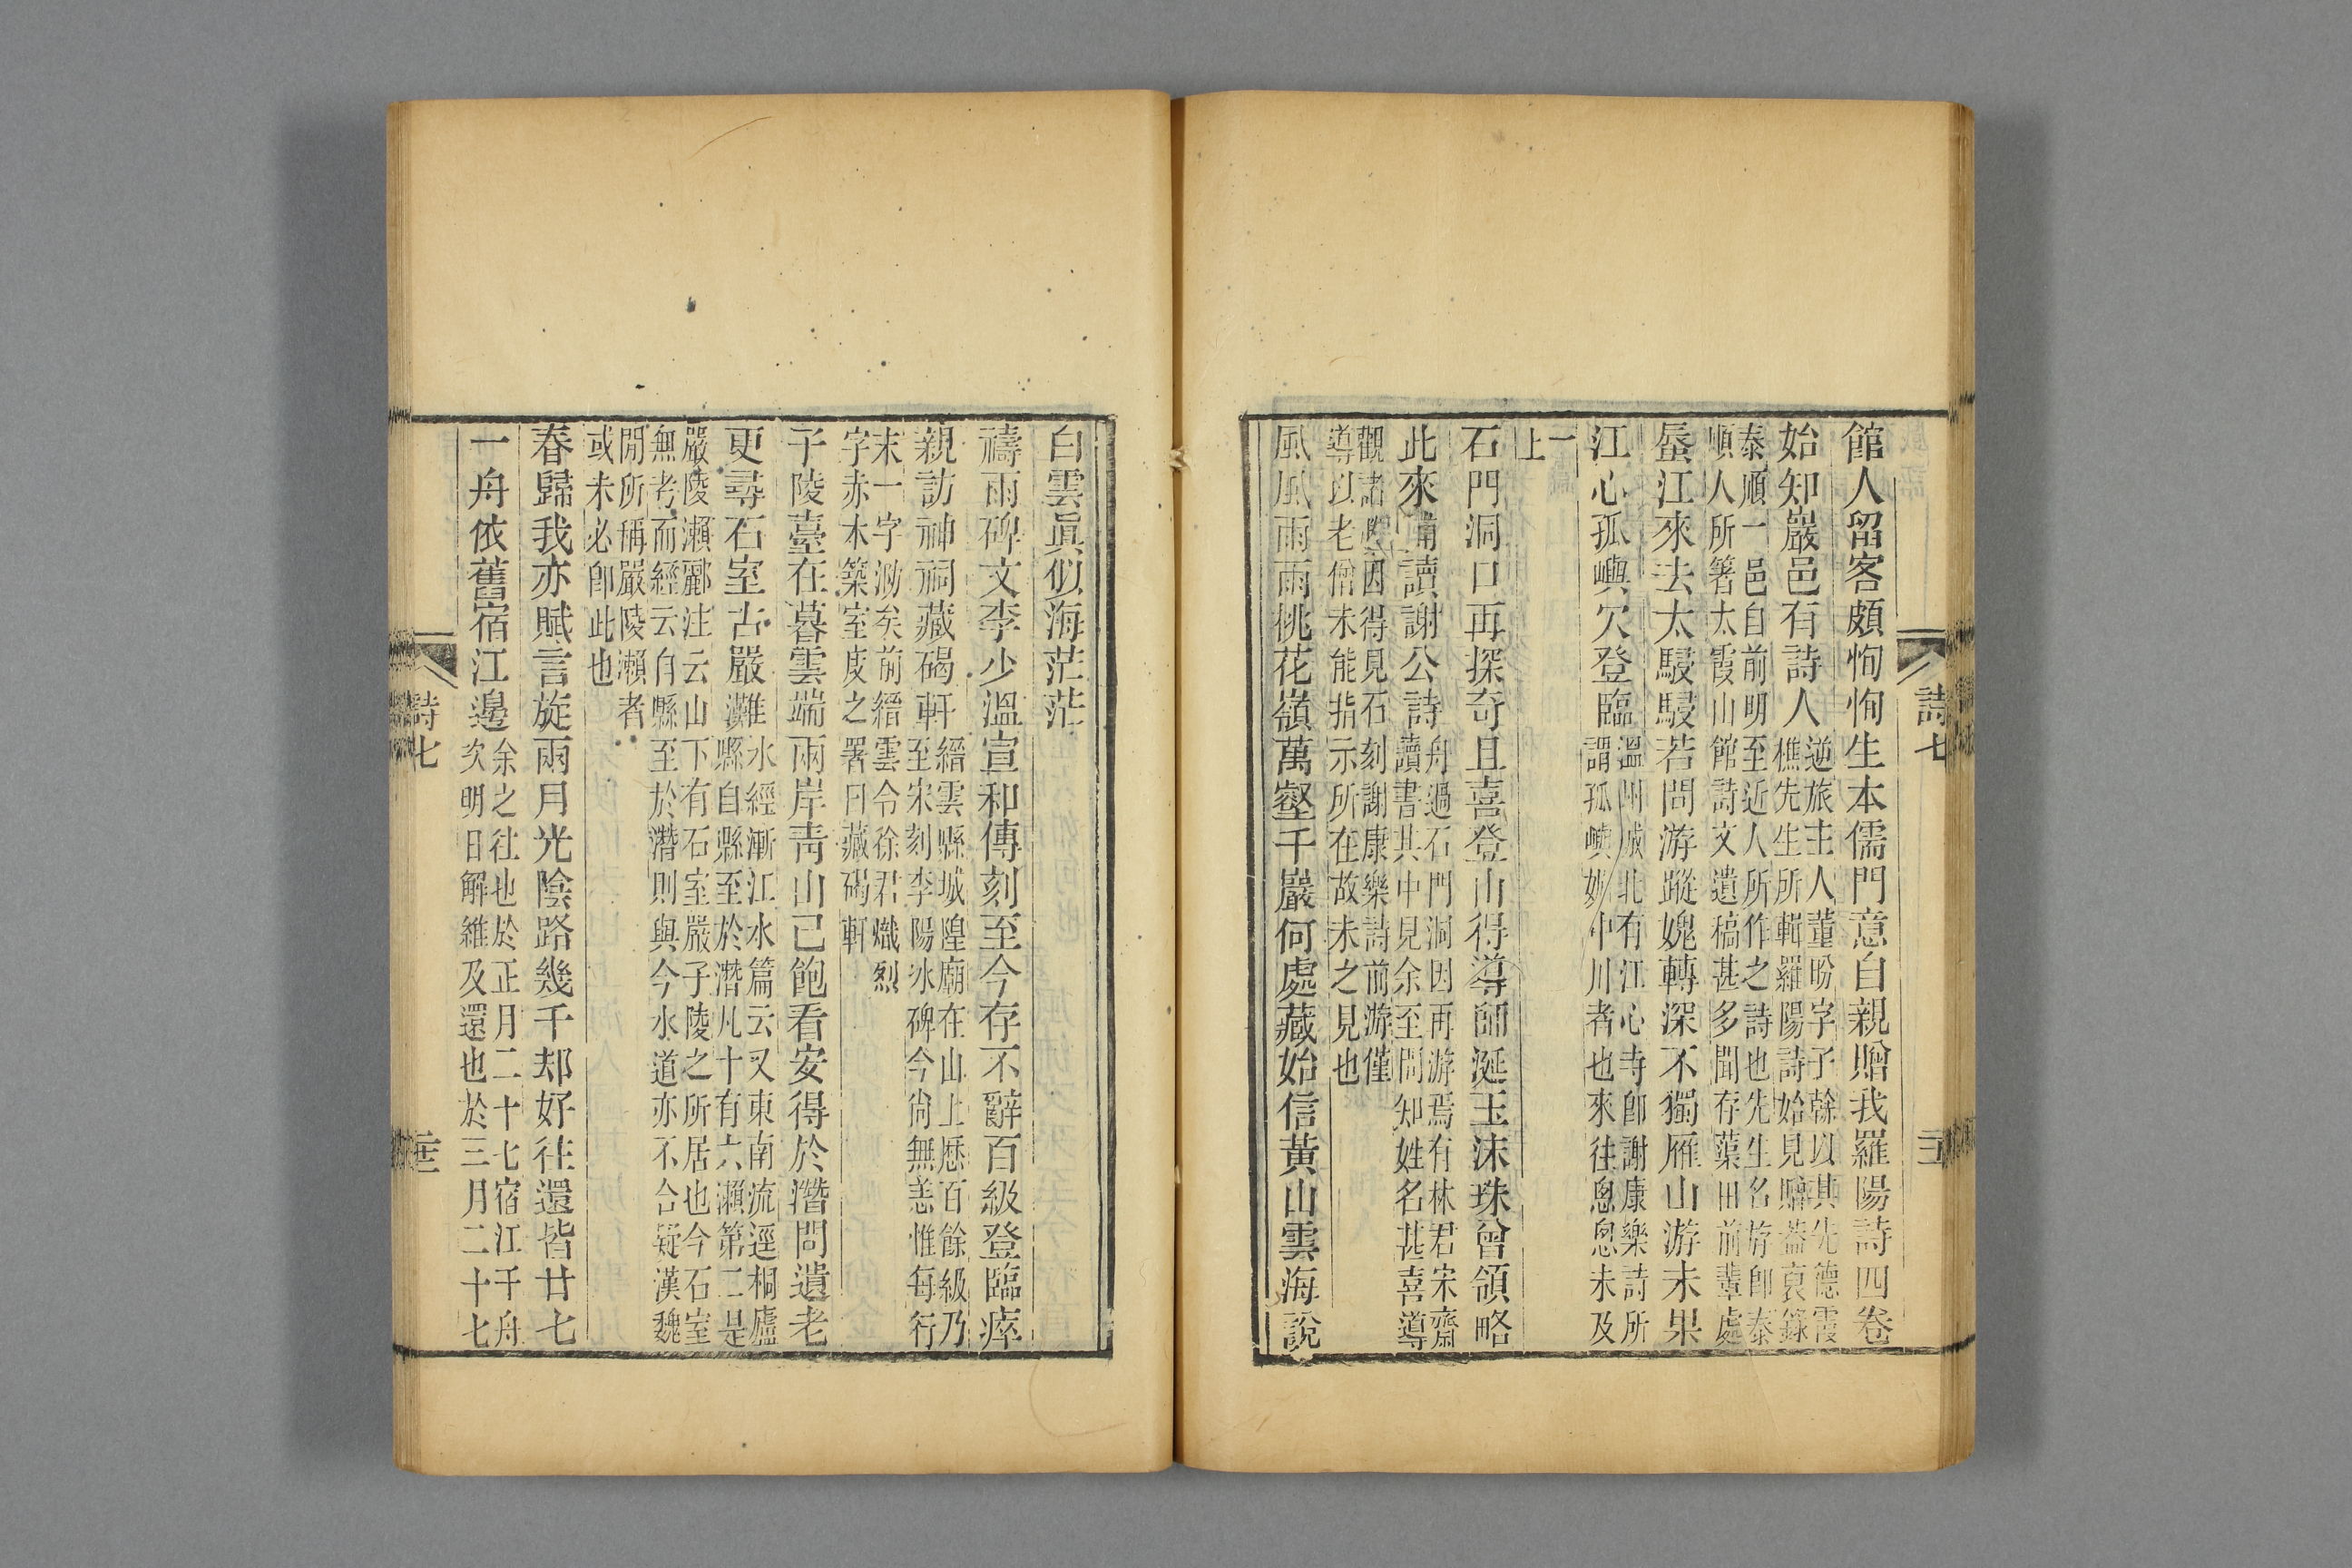 詩七
館人留客頗恂恂生本儒門意自親贈我羅陽詩四卷
始知巖邑有詩人逆旅主人董昐字子榦以其先德霞
樵先生所輯羅陽詩始見贈蓋裒錄
泰順一邑自前明至近人所作之詩也先生名斿卽泰
順人所箸太霞山館詩文遺稿甚多聞存葉田前輩處
蜃江來去太駸駸若問游蹤媿轉深不獨雁山游未果
江心孤嶼欠登臨溫州城北有江心寺卽謝康樂詩所
謂孤嶼媚中川者也來往悤悤未及
一
上
石門洞口再探奇且喜登山得導師涎玉沫珠曾領略
此來補讀謝公詩舟過石門洞因再游焉有林君宋齋
讀書其中見余至問知姓名甚喜導
觀諸勝因得見石刻謝康樂詩前游僅
導以老僧未能指示所在故未之見也
風風雨雨桃花嶺萬壑千巖何處藏始信黃山雲海說
白雲眞似海茫茫
禱雨碑文李少溫宣和傳刻至今存不辭百級登臨瘁
親訪神祠藏碣軒縉雲縣城隍廟在山上歷百餘級乃
至宋刻李陽冰碑今尙無恙惟每行
末一字泐矣前縉雲令徐君熾烈
字赤木築室庋之署曰藏碣軒
子陵臺在暮雲端兩岸靑山已飽看安得於潛問遺老
更尋石室古嚴灘水經漸江水篇云又東南流逕桐廬
縣自縣至於潛凡十有六瀨第二是
嚴陵瀨酈注云山下有石室嚴子陵之所居也今石室
無考而經云自縣至於潛則與今水道亦不合疑漢魏
閒所稱嚴陵瀨者
或未必卽此也
春歸我亦賦言旋兩月光陰路幾千却好往還皆廿七
一舟依舊宿江邊余之往也於正月二十七宿江干舟
次明日解維及還也於三月二十七
詩七